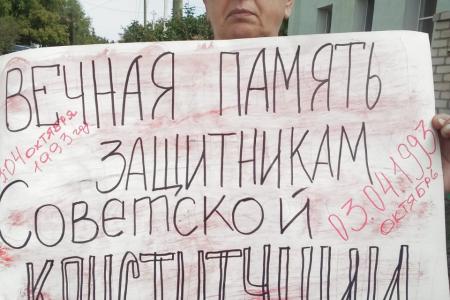 ВЕЧНАЯ ПАМЯТЬ
304 октября
1993 год
ЗАЩИТНИКАМ
Советской
03.04.1993
ОКТЯБРЬ
КОНСТИТУЦИИ